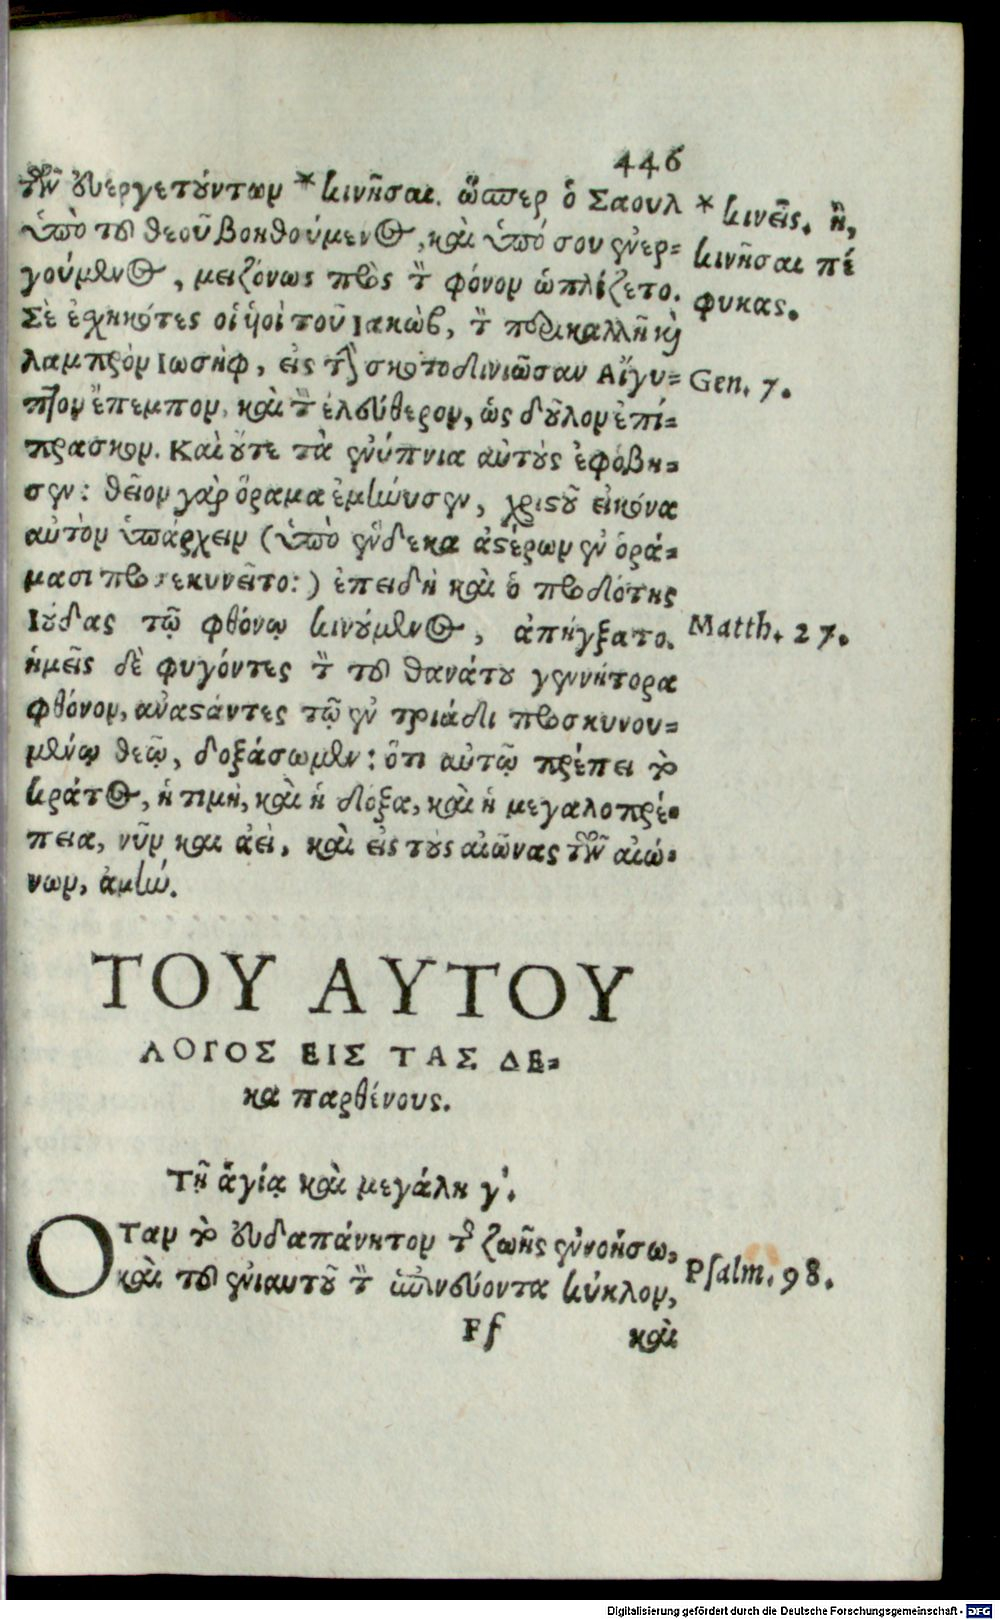 446
τῶν εὐεργετούντων * κινῆσαι. ὥσπερ ὁ Σαουλ
* κινεῖς. ἢ,
ὑπὸ τοῦ θεοῦ βοηθούμενος, καὶ ὑπό σου ἐνερ-
κινῆσαι πέ
γούμενος, μειζόνως πρὸς τὸν φόνον ὡπλίζετο.
φυκας.
Σὲ ἐσχηκότες οἱ ὑοὶ τοῦ Ιακὼβ, τὸν περικαλλῆ καὶ
λαμπρὸν Ιωσὴφ, εἰς τὴν σκοτοδινιῶσαν Αἴγυ-
Gen. 7.
πτον ἔπεμπον, καὶ τὸν ἐλεύθερον, ὡς δοῦλον ἐπί-
πρασκον. Καὶ οὔτε τὰ ἐνύπνια αὐτοὺς ἐφόβη-
σεν: θεῖον γὰρ ὅραμα ἐμήνυσεν, χριστοῦ εἰκόνα
αὐτὸν ὑπάρχειν (ὑπὸ ἕνδεκα ἀστέρων ἐν ὁρά-
μασι προσεκυνεῖτο:) ἐπειδὴ καὶ ὁ προδότης
Ιούδας τῷ φθόνῳ κινούμενος, ἀπήγξατο.
Matth. 27.
ἡμεῖς δὲ φυγόντες τὸν τοῦ θανάτου γεννήτορα
φθόνον, ἀναστάντες τῷ ἐν τριάδι προσκυνου-
μένῳ θεῷ, δοξάσωμεν: ὅτι αὐτῷ πρέπει τὸ
κράτος, ἡ τιμὴ, καὶ ἡ δόξα, καὶ ἡ μεγαλοπρέ-
πεια, νῦν και ἀεὶ, καὶ εἰς τοὺς αἰῶνας τῶν αἰώ-
νων, ἀμήν.
ΤΟΥ ΑΥΤΟΥ
ΛΟΓΟΣ ΕΙΣ ΤΑΣ ΔΕ-
κα παρθένους.
Τῇ ἁγίᾳ καὶ μεγάλη γ΄.
Οταν τὸ εὐδαπάνητον τῆς ζωῆς ἐννοήσω,
καὶ τοῦ ἐνιαυτοῦ τὸν περινεύοντα κύκλον,
Psalm. 98.
Ff
καὶ
Digitalisierung gefördert durch die Deutsche Forschungsgemeinschaft - DFG